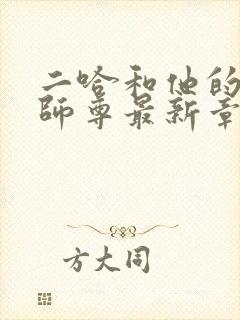 二哈和他的
师尊最新章
方大同